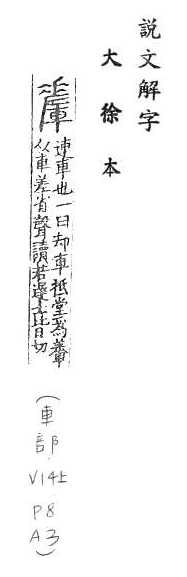 說文解字
大徐本
連車也一曰却車抵堂為
从車差省聲讀若遲士皆切
(車部 V14上 P8 A3)